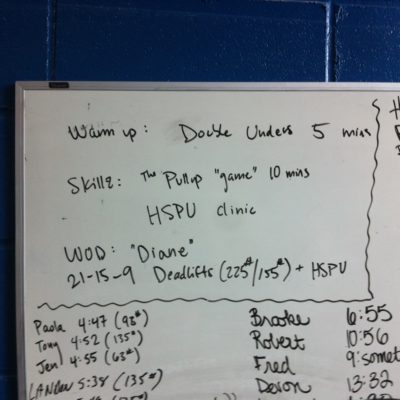 Warm up: Double Unders 5 mins
Skillz: The Pullup "game" 10 mins
HSPU clinic
WOD: "Diane"
21-15-9 Deadlifts (225#/155#) + HSPU
Paola 4:47 (93#)
Tony 4:52 (135#)
Jen 4:55 (63#)
5:38 (135#)
Brooke 6:55
Robert 10:56
Fred 9:somet
Devon 13:32